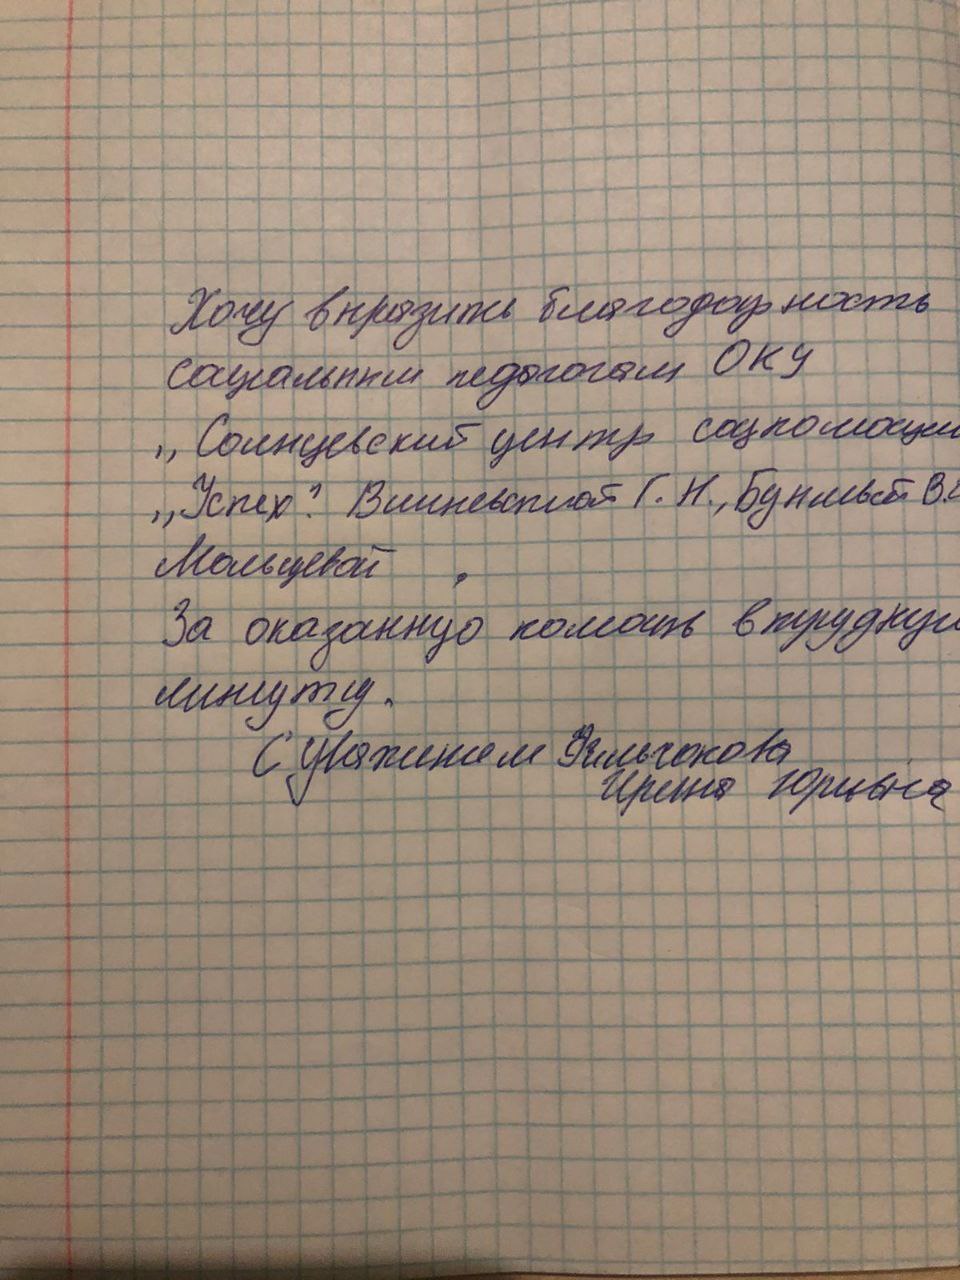 Хочу выразить благодарность
социальным педагогам ОКУ
„Солнцевский центр соцпомощи
„Успех". Г. Н.,
Мальцевой ,
За оказанную помощь в трудную
минуту.
С Уважением
Ирина Юрьевна